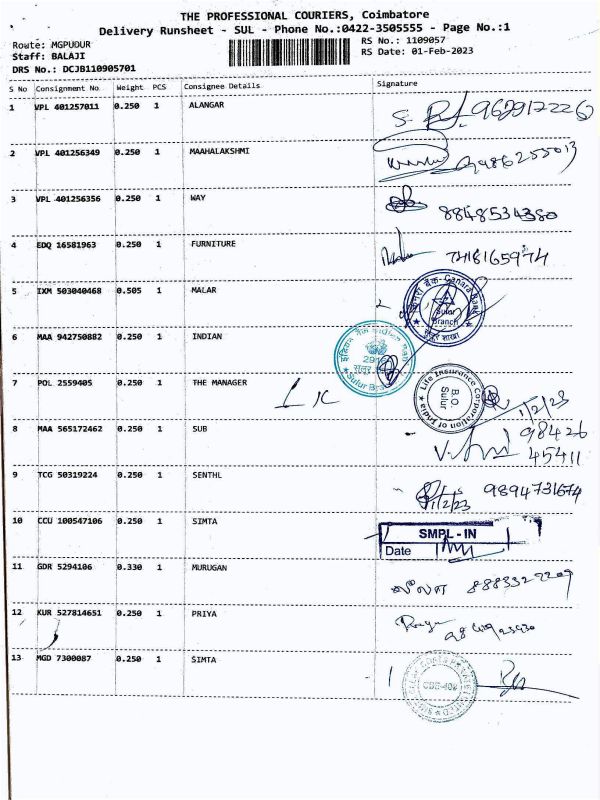 THE PROFESSIONAL COURIERS, Coimbatore
Delivery Runsheet - SUL - Phone No.:0422-3505555 - Page No.:1
Route: MGPUDUR
Staff: BALAJI
DRS No.: DCJB110905701
RS No.: 1109057
RS Date: 01-Feb-2023
S No Consignment No Weight PCS Consignee Details Signature
1 VPL 401257011 0.250 1 ALANGAR
2 VPL 401256349 0.250 1 MAAHALAKSHMI
3 VPL 401256356 0.250 1 WAY 8848534380
4 EDQ 16581963 0.250 1 FURNITURE
5 IXM 503040468 0.505 1 MALAR
केनरा बैंक - Canara Bank
Sulur
Branch
सुलूर शाखा
6 MAA 942750882 0.250 1 INDIAN
Sulur Branch
7 POL 2559405 0.250 1 THE MANAGER
Life Insurance Corporation of India
B.O.
Sulur
1/2/23
8 MAA 565172462 0.250 1 SUB 98426
45411
9 TCG 50319224 0.250 1 SENTHL 9894731674
1/2/23
10 CCU 100547106 0.250 1 SIMTA
SMPL - IN
Date
11 GDR 5294106 0.330 1 MURUGAN
12 KUR 527814651 0.250 1 PRIYA
13 MGD 7300087 0.250 1 SIMTA